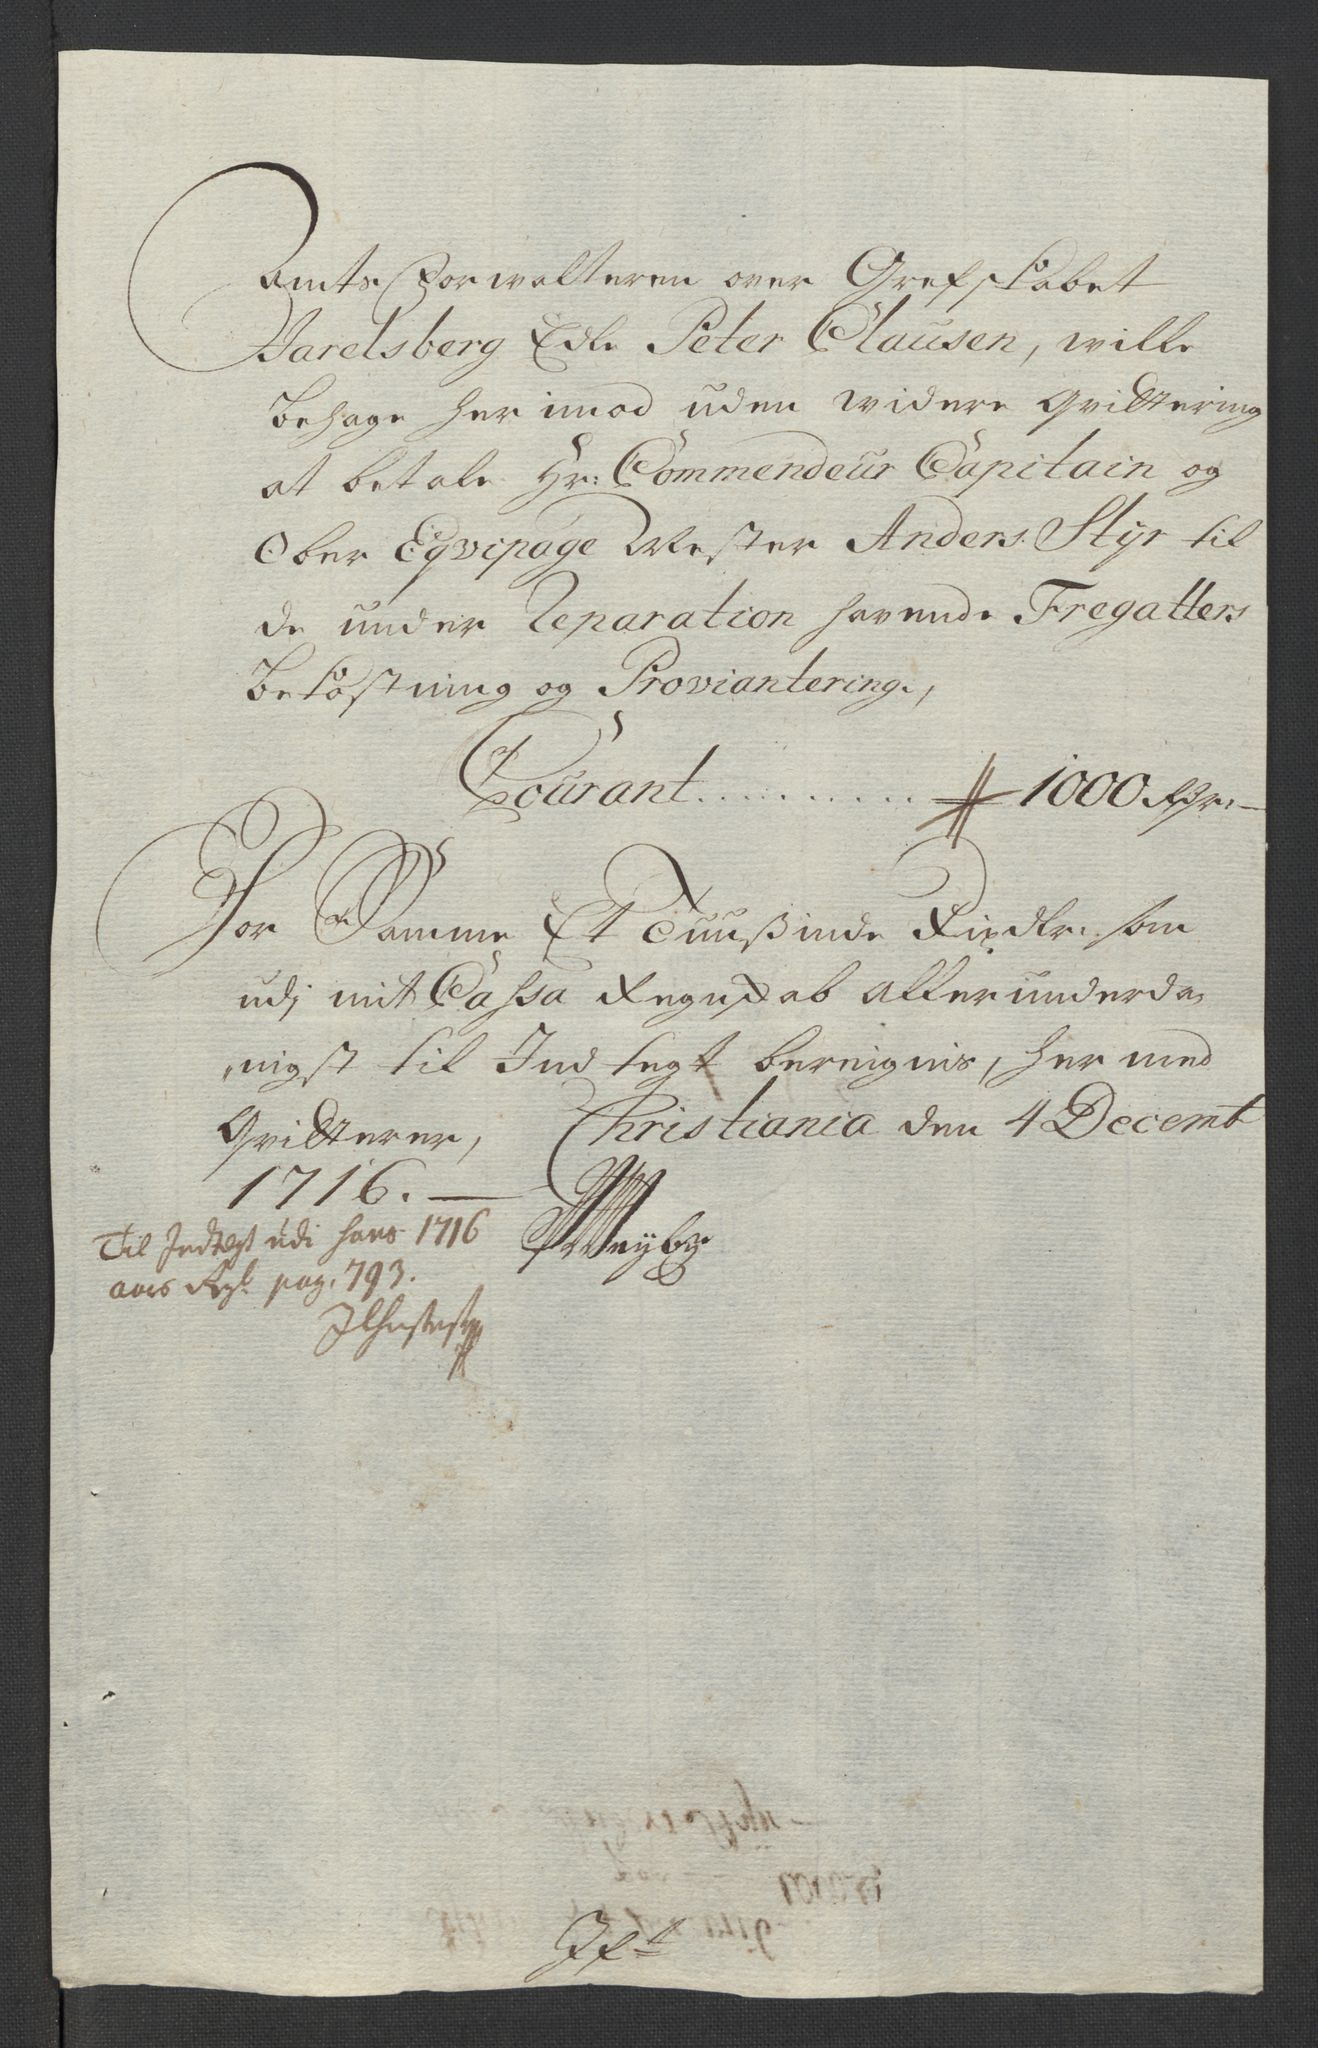 Amts Forwalteren over Grefskabet
Jarelsberg Edle Peter Clausen, wille
behage her imod uden widere Qvittering
at betale Hr: Commendeur Capitain og
Ober Eqvipage Mester Anders Styr til
de under Reparation havende Fregatters
bekostning og Proviantering,
Courant . . . . . . . . . . 1000 Rdr: —
For Samme Et Tuusinde Rixdlr: som
udj mit Cassa Regnskab allerunderda,
,nigst til Indtegt beregnis, her med
Qvitterer, Christiania den 4 Decemb
1716. —
Til Indtegt udi hans 1716
aars Regl. pag. 793.